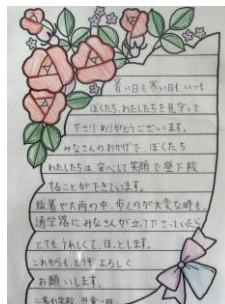 暑い日も寒い日も、いつも
ぼくたち、わたしたちを見守って
下さりありがとうございます。
みなさんのおかげで、ぼくたち
わたしたちは安心して笑顔で登下校
することができています。
猛暑や大雨の中、歩くのが大変な時も、
通学路にみなさんが立って下さっていたら
とてもうれしくて、ほっとします。
これからも、どうぞよろしく
お願いします。
小学校 児童一同